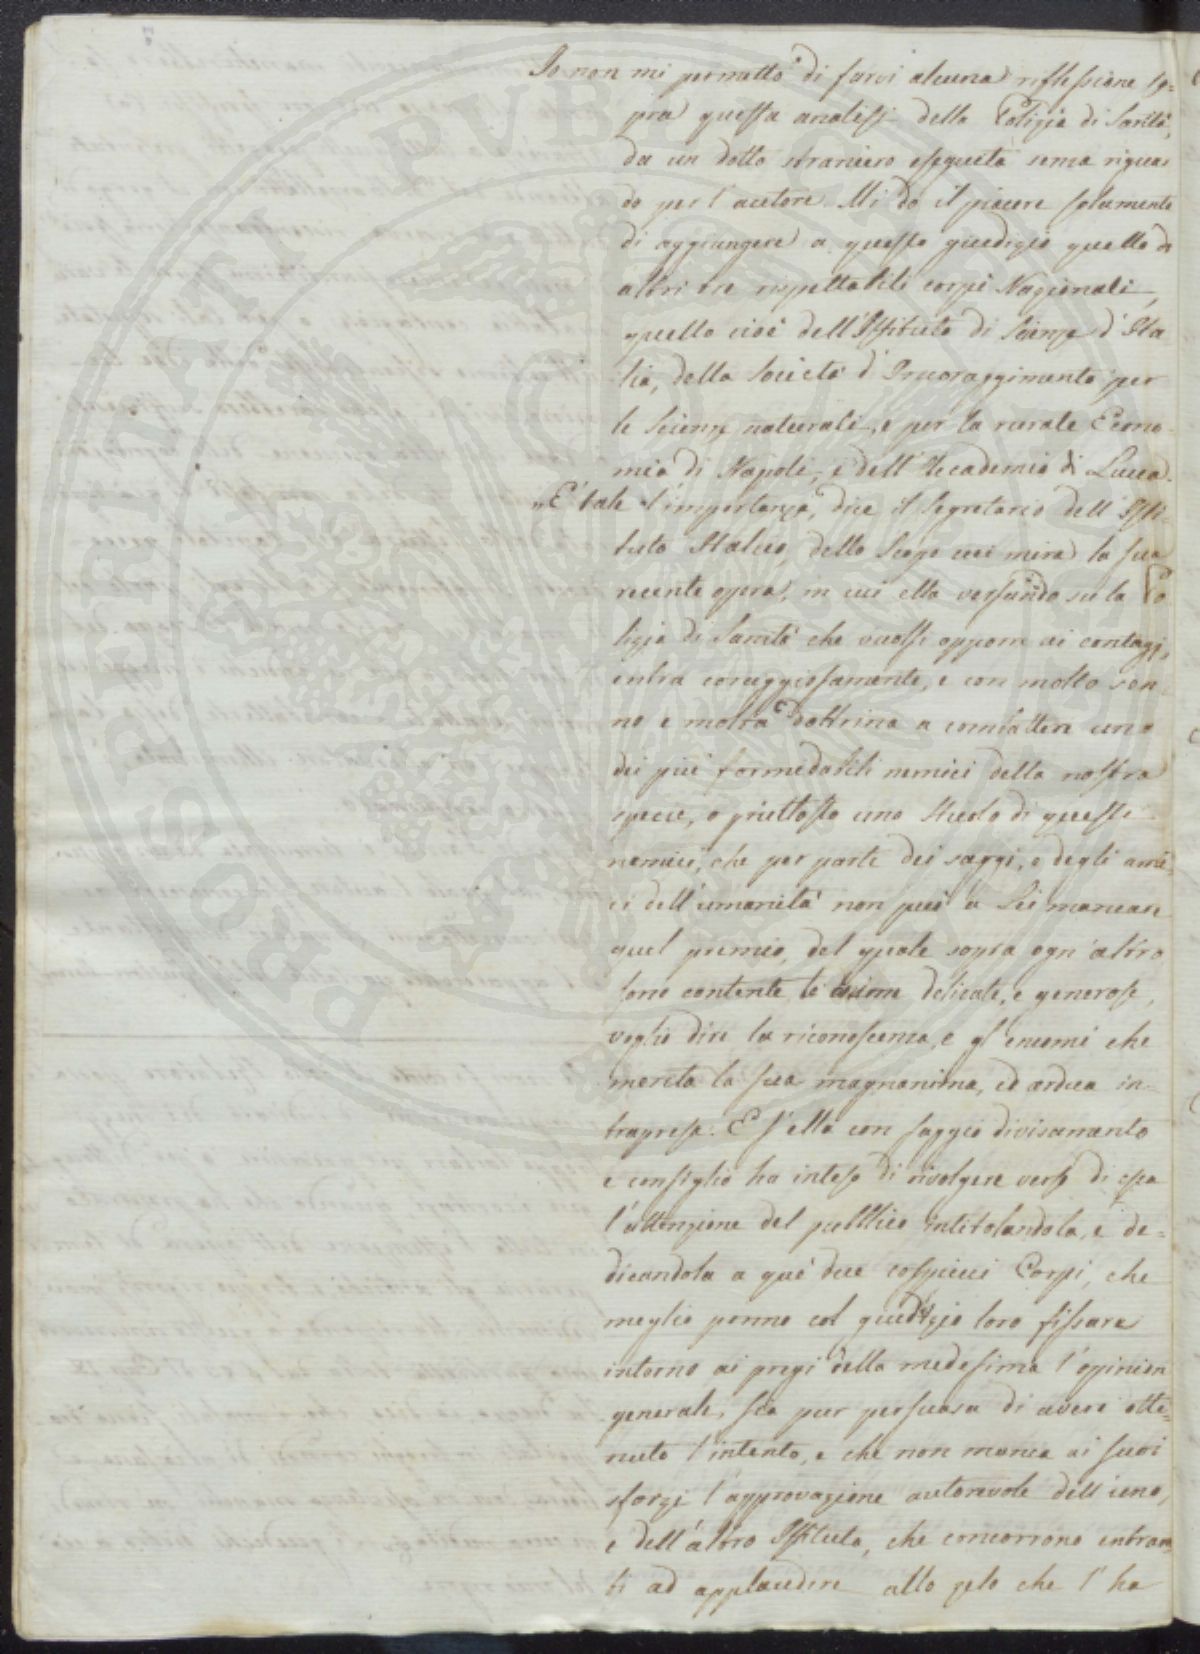 Io non mi permetto di farvi alcuna riflessione so-
pra questa analisi della Polizia di Sanità,
da un dotto straniero eseguita senza riguar
do per l'autore. Mi do il piacere solamente
di aggiungere a questo giudizio quello di
altri tre rispettabili corpi Nazionali,
quello cioè dell'Istituto di Scienze d'Ita
lia, della Società d'Incoraggimento per
le Scienze naturali, e per la rurale Econo
mia di Napoli, e dell'Accademia di Lucca.
„E' tale l'importanza, dice il Segretario dell'Isti-
tuto Italico, dello Scopo cui mira la sua
recente opera, in cui ella versando su la Po
lizia di Sanità che vuolsi opporre ai contagj,
entra coraggiosamente, e con molto sen
no e molta dottrina a combattere uno
dei più formidabili nemici della nostra
specie, o piuttosto uno stuolo di questi
nemici, che per parte dei saggi, e degli ami-
ci dell'umanità non può a Lei mancare
quel premio, del quale sopra ogn'altro
sono contente le anime delicate, e generose,
voglio dire la riconoscenza, e gl'encomi che
merita la sua magnanima, ed ardua in-
trapresa. E s'ella con saggio divisamento
e consiglio ha inteso di rivolgere verso di essa
l'attenzione del pubblico intitolandola, e de-
dicandola a que' due cospicui Corpi, che
meglio ponno col giudizio loro fissare
intorno ai pregi della medesima l'opinion
generale, sia pur persuasa di avere otte-
nuto l'intento, e che non manca ai suoi
sforzi l'approvazione autorevole dell'uno,
e dell'altro Istituto, che concorrono entram-
bi ad applaudire allo zelo che l'ha